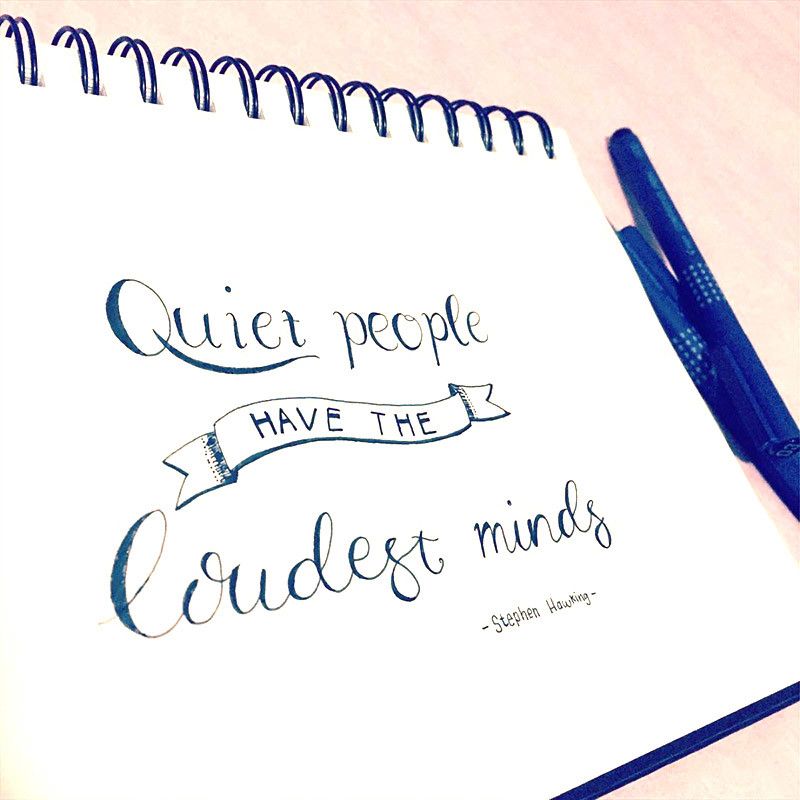 Quiet people
HAVE THE
loudest minds
-Stephen Hawking-